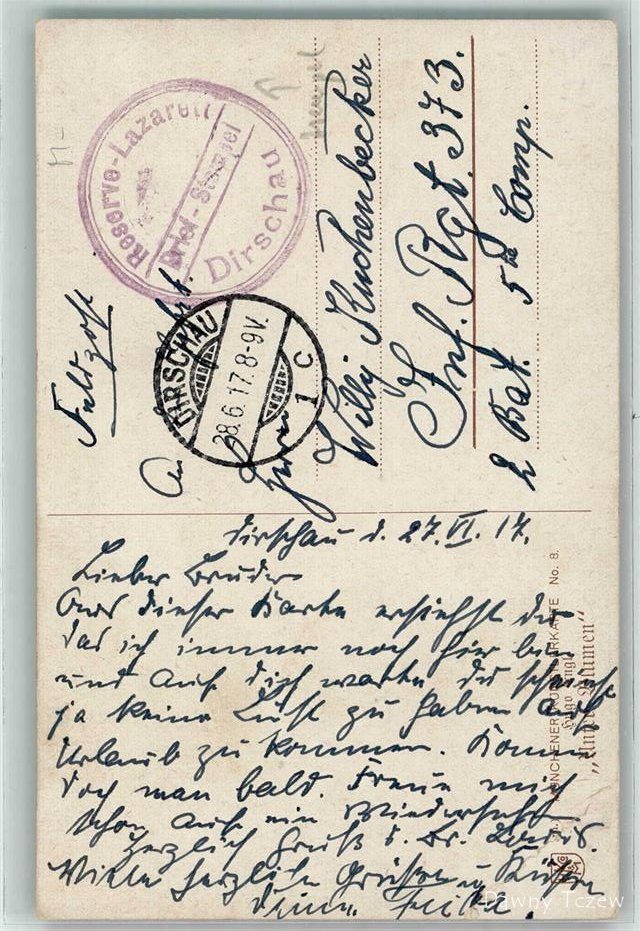 Reserve-Lazarett
Brief-Stempel
Dirschau
Feldpost
DIRSCHAU
28.6.17.8-9V.
1 C
An
Herrn
Willy Kuchenbecker
Inf. Rgt. 373.
2 Bat. 5te Comp.
Dirschau d. 27.VI.17.
Lieber Bruder
Aus dieser Karte ersiehst du
das ich immer noch hier bin
und auf dich warte du scheinst
ja keine Lust zu haben auf
Urlaub zu kommen. Komm
doch man bald. Freue mich
schon auf ein Wiedersehn
Herzlich Gruß d. Br.
Viele herzliche Grüße u Küsse
deine
MÜNCHENER KARTE No. 8.
Hugo
Dawny Tczew